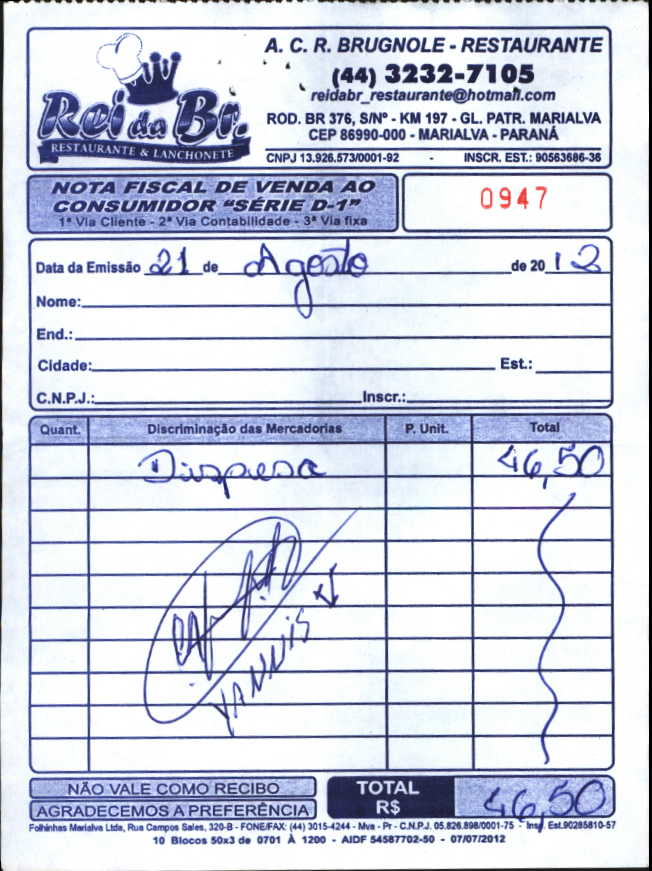 A. C. R. BRUGNOLE - RESTAURANTE
(44) 3232-7105
reidabr_restaurante@hotmail.com
Rei da Br.
RESTAURANTE & LANCHONETE
ROD. BR 376, S/Nº - KM 197 - GL. PATR. MARIALVA
CEP 86990-000 - MARIALVA - PARANÁ
CNPJ 13.926.573/0001-92 - INSCR. EST.: 90563686-36
NOTA FISCAL DE VENDA AO
CONSUMIDOR "SÉRIE D-1"
1ª Via Cliente - 2ª Via Contabilidade - 3ª Via fixa
0947
Data da Emissão 21 de Agosto de 2012
Nome:
End.:
Cidade: Est.:
C.N.P.J.: Inscr.:
Quant. Discriminação das Mercadorias P. Unit. Total
Dispesa 46,50
YANNIS
NÃO VALE COMO RECIBO
AGRADECEMOS A PREFERÊNCIA
TOTAL R$ 46,50
Folhinhas Marialva Ltda, Rua Campos Sales, 320-B - FONE/FAX: (44) 3015-4244 - Mva - Pr - C.N.P.J. 05.826.898/0001-75 - Insc. Est.90285810-57
10 Blocos 50x3 de 0701 À 1200 - AIDF 54587702-50 - 07/07/2012